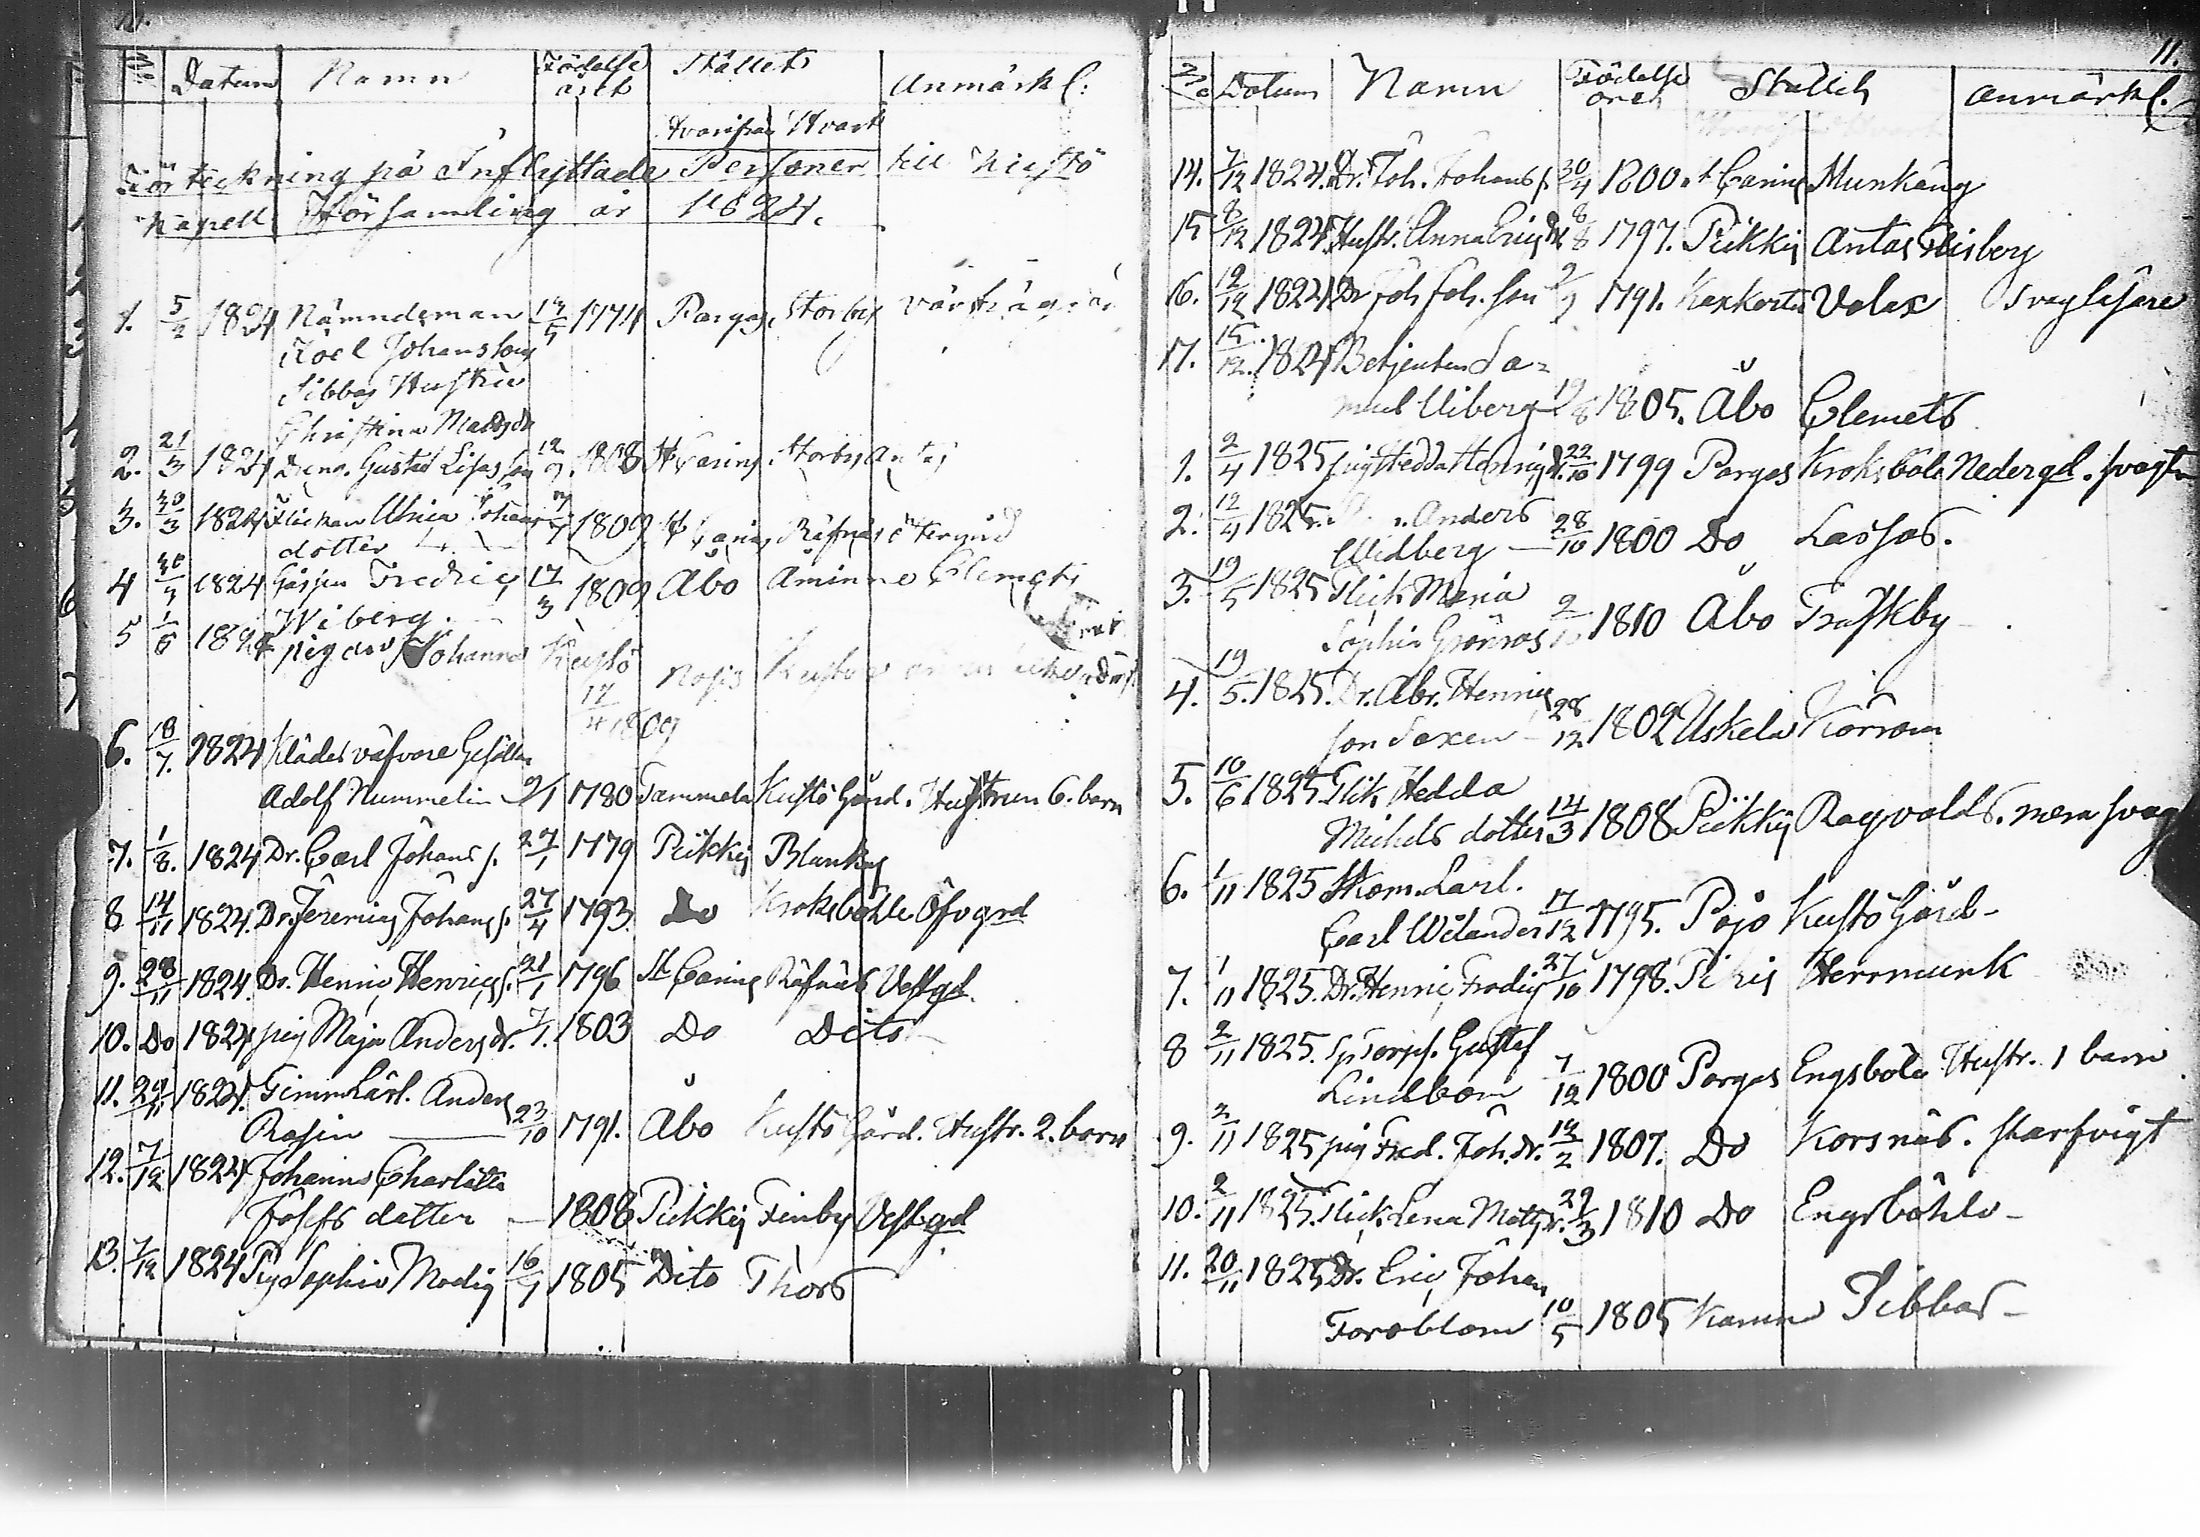 No Datum Namn Födelse året Stället Anmärk:
Hvarifrån Hvart
Förteckning på Inflyttade Personer till Kustö
Kapell Församling år 1824.
1. 5/2 1824 Nämndeman 1774 Pargas Storby
Joel Johansson
Sibbas Hustru
Christina
2. 21/3 1824 Gustaf 1808 St Carins Storby Antas
3. 30/3 1824 Flickan Ulrica Johans 1809 St Carins Räfnäs
dotter
4 1824 Gåssen Fredric 17/3 1809 Åbo Aminne Clemets
Wiberg
5 1/6 1824 pigan Johanna Kustö
17/4 1809
6. 18/7. 1824 Klädesväfvare Gesällen
Adolf Nummelin 9/1 1780 Tammela Kustö Gård. Hustrun 6. barn
7. 1/8. 1824 Dr. Carl Johans s. 27/1 1779 Pikkis Blankas
8 14/11 1824. Dr. Jeremias Johans s. 27/4 1793. Do Kroksböhle Öfvgrd
9. 28/11 1824. Dr. Henric Henrics s. 21/1 1796 St Carins Räfnäs Vestgd.
10. Do 1824 pig Maja Anders dr. 7/1. 1803 Do Dito
11. 29/11 1824. Anders
Rosin — 23/10 1791. Åbo Kustö Gård. Hustr. 2. barn
12. 7/12 1824 Johanna Charlotta
Josefs dotter — 1808 Pikkis Finby Vestgd
13. 7/12 1824 Pig Sophia Modig 16/1 1805 Dito Thors
11.
No Datum Namn Födelse året Stället Anmärk.
14. 7/12 1824. Dr. Joh. Johans s. 30/4 1800 St Carins Munkäng
15 8/12 1824. Hustr. Anna Erics dr 8/8 1797. Pikkis Antas Flisberg
16. 12/12 1824 Dr Joh Joh. son 9/1 1791. Karkortis Valax svag läsare
17. 15/12. 1824 Betjenten Sa-
muel Wiberg 19/8 1805. Åbo Clemets
1. 2/4 1825 pig Hedda Henrics dr. 22/10 1799 Pargas Kroksböle Nedergd.
2. 12/4 1825. Anders
Widberg — 28/10 1800 Do Lassas.
3. 19/5 1825 Flick Maria
Sophia Grönros 1810 Åbo Träskby
4. 19/5. 1825. Dr. Abr. Henrics
son Saxen — 28/12 1802 Uskela Körrom
5. 10/6 1825. Flik. Hedda
Michels dotter 14/3 1808 Pikkis Ragvalds. mera svag
6. 1/11 1825 Skom. Lärl.
Carl Wilander 17/12 1795. Pojo Kustö Gård-
7. 1/11 1825. Dr. Henric Fredrics 27/10 1798. Pikis Herrmunk
8 2/11 1825. Gustaf
Lindbom 7/12 1800 Pargas Engsböle Hustr. 1 barn
9. 2/11 1825 pig Fred. Joh. dr. 14/2 1807. Do Korsnäs. skarsvigt
10. 2/11 1825. Flick. Lena Mats dr. 29/3 1810 Do Engsböhle-
11. 20/11 1825 Dr. Eric Johan
Forsblom 10/5 1805 Karuna Sibbas-